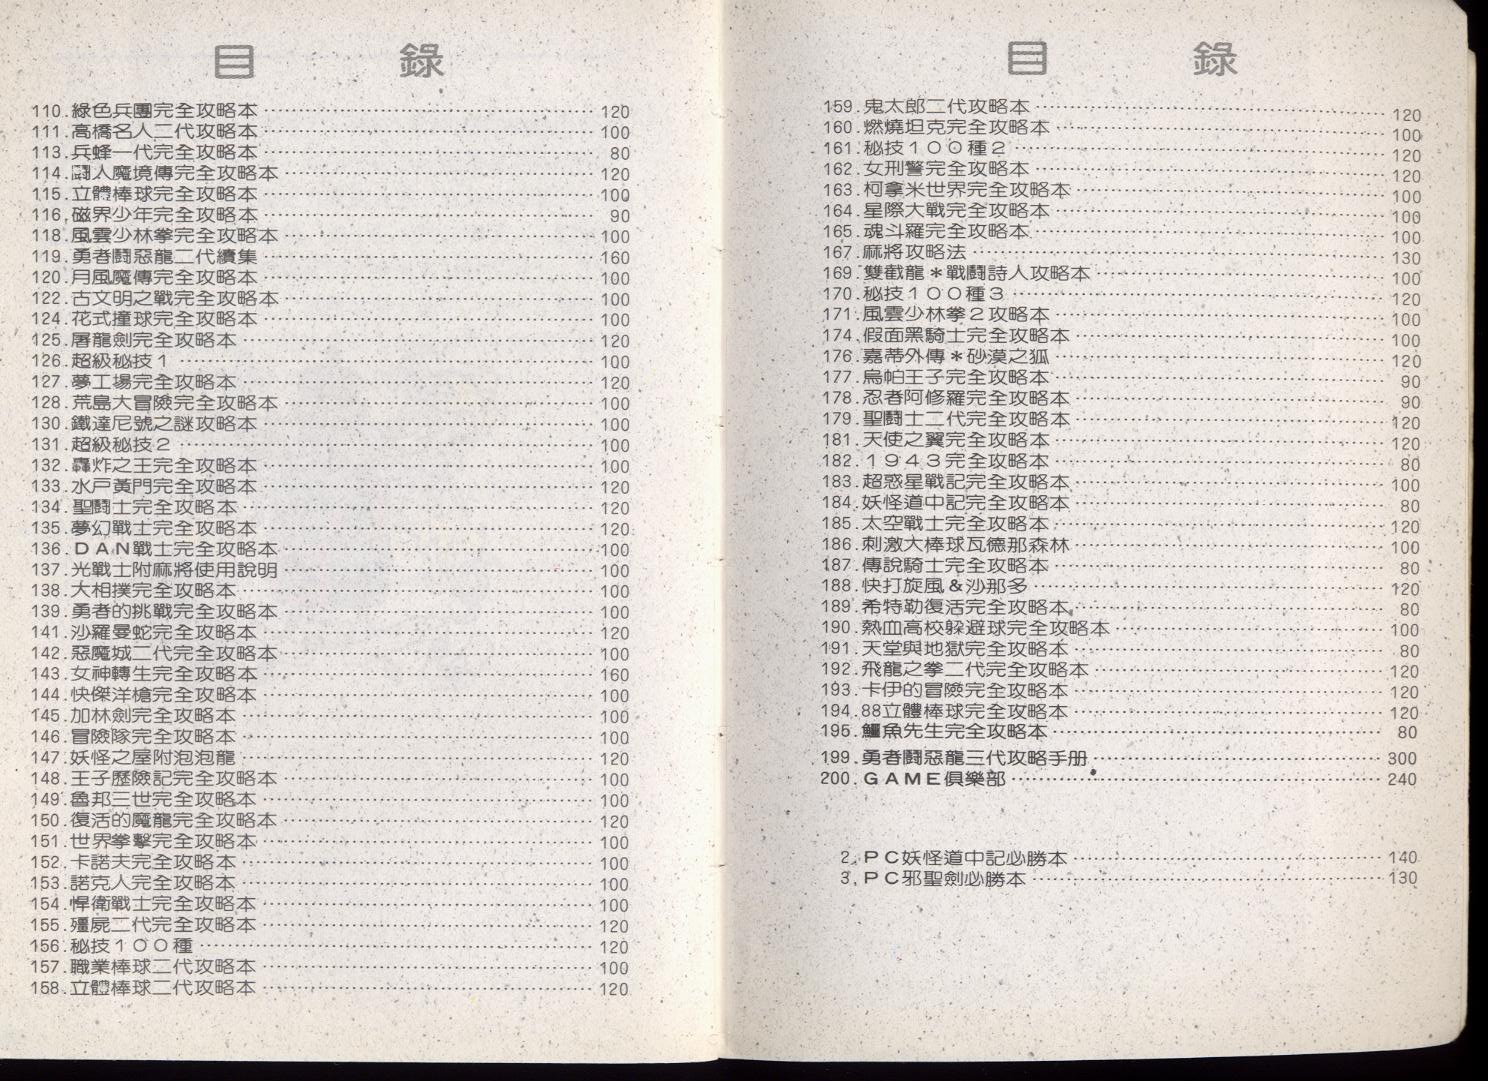 目 錄
110.綠色兵團完全攻略本 120
111.高橋名人二代攻略本 100
113.兵蜂一代完全攻略本 80
114.鬪人魔境傳完全攻略本 120
115.立體棒球完全攻略本 100
116.磁界少年完全攻略本 90
118.風雲少林拳完全攻略本 100
119.勇者鬪惡龍二代續集 160
120.月風魔傳完全攻略本 100
122.古文明之戰完全攻略本 100
124.花式撞球完全攻略本 100
125.屠龍劍完全攻略本 120
126.超級秘技1 100
127.夢工場完全攻略本 120
128.荒島大冒險完全攻略本 100
130.鐵達尼號之謎攻略本 100
131.超級秘技2 100
132.轟炸之王完全攻略本 100
133.水戸黃門完全攻略本 120
134.聖鬪士完全攻略本 120
135.夢幻戰士完全攻略本 120
136.DAN戰士完全攻略本 100
137.光戰士附麻將使用說明 100
138.大相撲完全攻略本 100
139.勇者的挑戰完全攻略本 100
141.沙羅曼蛇完全攻略本 120
142.惡魔城二代完全攻略本 100
143.女神轉生完全攻略本 160
144.快傑洋槍完全攻略本 100
145.加林劍完全攻略本 100
146.冒險隊完全攻略本 100
147.妖怪之屋附泡泡龍 120
148.王子歷險記完全攻略本 100
149.魯邦三世完全攻略本 100
150.復活的魔龍完全攻略本 120
151.世界拳擊完全攻略本 100
152.卡諾夫完全攻略本 100
153.諾克人完全攻略本 100
154.悍衛戰士完全攻略本 100
155.殭屍二代完全攻略本 120
156.秘技100種 120
157.職業棒球二代攻略本 100
158.立體棒球二代攻略本 120
目 錄
159.鬼太郎二代攻略本 120
160.燃燒坦克完全攻略本 100
161.秘技100種2 120
162.女刑警完全攻略本 120
163.柯拿米世界完全攻略本 100
164.星際大戰完全攻略本 100
165.魂斗羅完全攻略本 100
167.麻將攻略法 130
169.雙截龍＊戰鬪詩人攻略本 100
170.秘技100種3 120
171.風雲少林拳2攻略本 100
174.假面黑騎士完全攻略本 100
176.嘉蒂外傳＊砂漠之狐 120
177.烏帕王子完全攻略本 90
178.忍者阿修羅完全攻略本 90
179.聖鬪士二代完全攻略本 120
181.天使之翼完全攻略本 120
182.1943完全攻略本 80
183.超惑星戰記完全攻略本 100
184.妖怪道中記完全攻略本 80
185.太空戰士完全攻略本 120
186.刺激大棒球瓦德那森林 100
187.傳說騎士完全攻略本 80
188.快打旋風&沙那多 120
189.希特勒復活完全攻略本 80
190.熱血高校躲避球完全攻略本 100
191.天堂與地獄完全攻略本 80
192.飛龍之拳二代完全攻略本 120
193.卡伊的冒險完全攻略本 120
194.88立體棒球完全攻略本 120
195.鱷魚先生完全攻略本 80
199.勇者鬪惡龍三代攻略手册 300
200.GAME俱樂部 240
2.PC妖怪道中記必勝本 140
3.PC邪聖劍必勝本 130